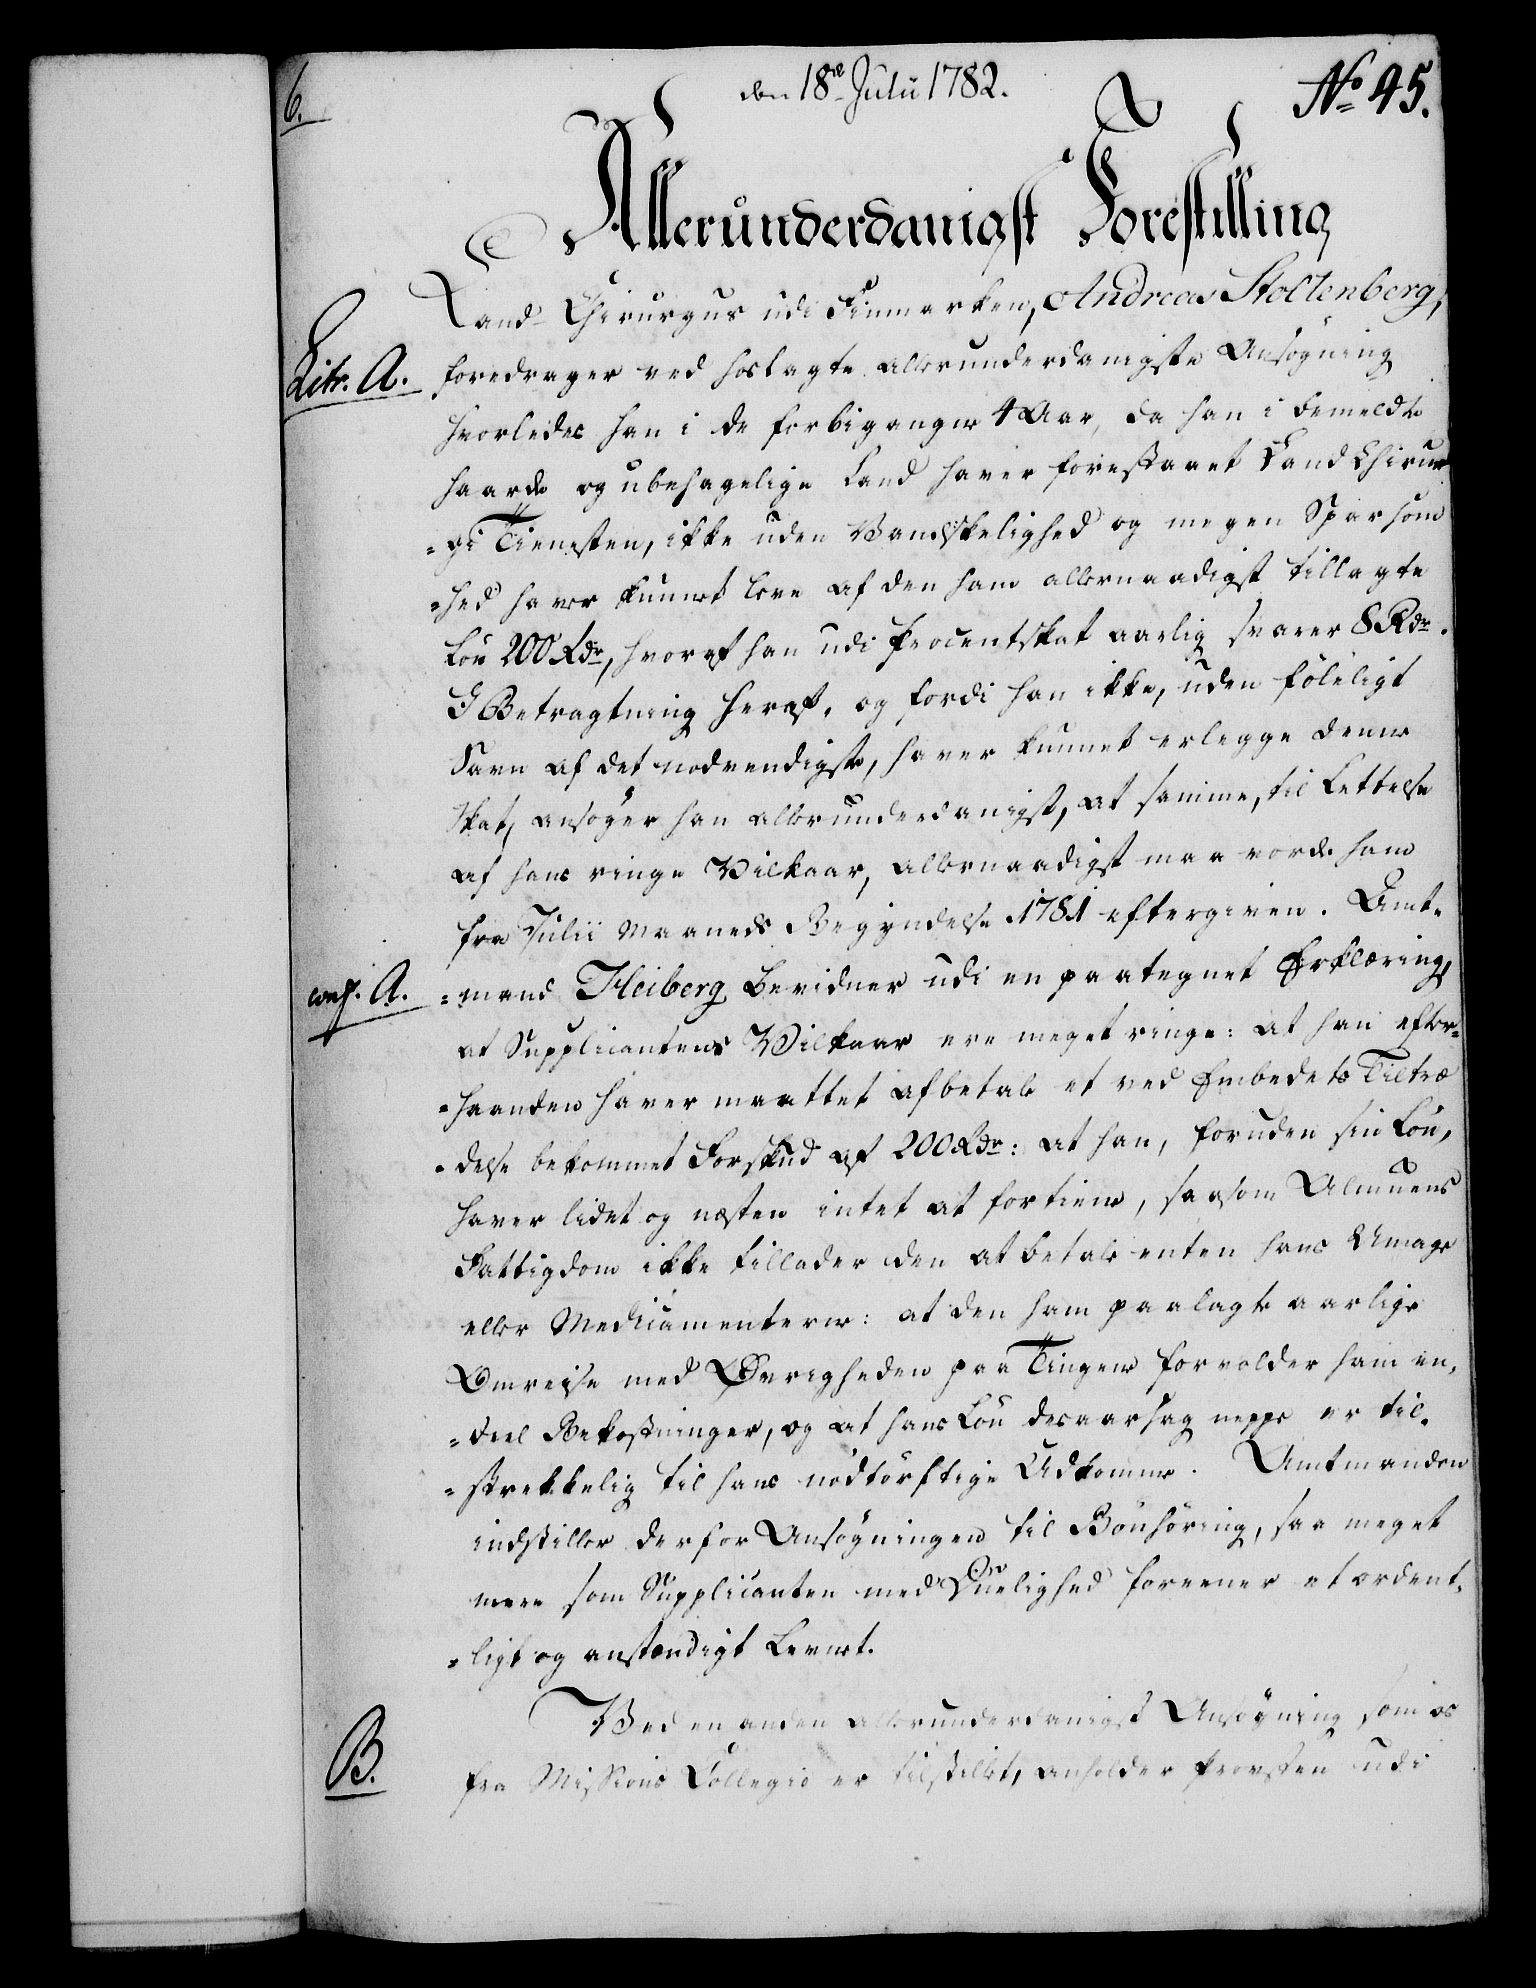 6.
den 18de Julii 1782.
No 45.
Allerunderdanigst Forestilling
Land-Chirurgus udi Finmarken, Andreas Stoltenberg,
Litr. A.
foredrager ved hoslagte allerunderdanigste Ansøgning
hvorledes han i de forbigangne 4 Aar, da han i bemeldte
haarde og ubehagelige Land haver forestaaet Land Chirur
=gi Tienesten, ikke uden Vandskelighed og megen Sparsom
=hed haver kunnet leve af den ham allernaadigst tillagte
Løn 200 Rdr, hvoraf han udi Procentskat aarlig svarer 8 Rdr.
I Betragtning heraf, og fordi han ikke, uden føleligt
Savn af det nødvendigste, haver kunnet erlegge denne
Skat, ansøger han allerunderdanigst, at samme, til Lettelse
af hans ringe Vilkaar, allernaadigst maa vorde ham
fra Julii Maaneds Begyndelse 1781 eftergiven. Amt-
conf. A.
=mand Heiberg bevidner udi en paategnet Erklæring,
at Supplicantens Vilkaar ere meget ringe: at han efter-
=haanden haver maattet afbetale et ved Embedets Tiltræ
=delse bekommet Forskud af 200 Rdr: at han, foruden sin Løn,
haver lidet og næsten intet at fortiene, saasom Almuens
Fattigdom ikke tillader den at betale enten hans Umage
eller Medicamenterne: at den ham paalagte aarlige
Omreise med Øvrigheden paa Tingene forvolder ham en-
=deel Bekostninger, og at hans Løn desaarsag neppe er til-
=strekkelig til hans nødtørftige Udkomme. Amtmanden
indstiller derfor Ansøgningen til Bønhøring, saa meget
mere som Supplicanten med Duelighed foreener et ordent-
=ligt og anstændigt Levnet.
Ved en anden allerunderdanigst Ansøgning som os
B.
fra Missions Collegio er tilstillet, anholder Provsten udi